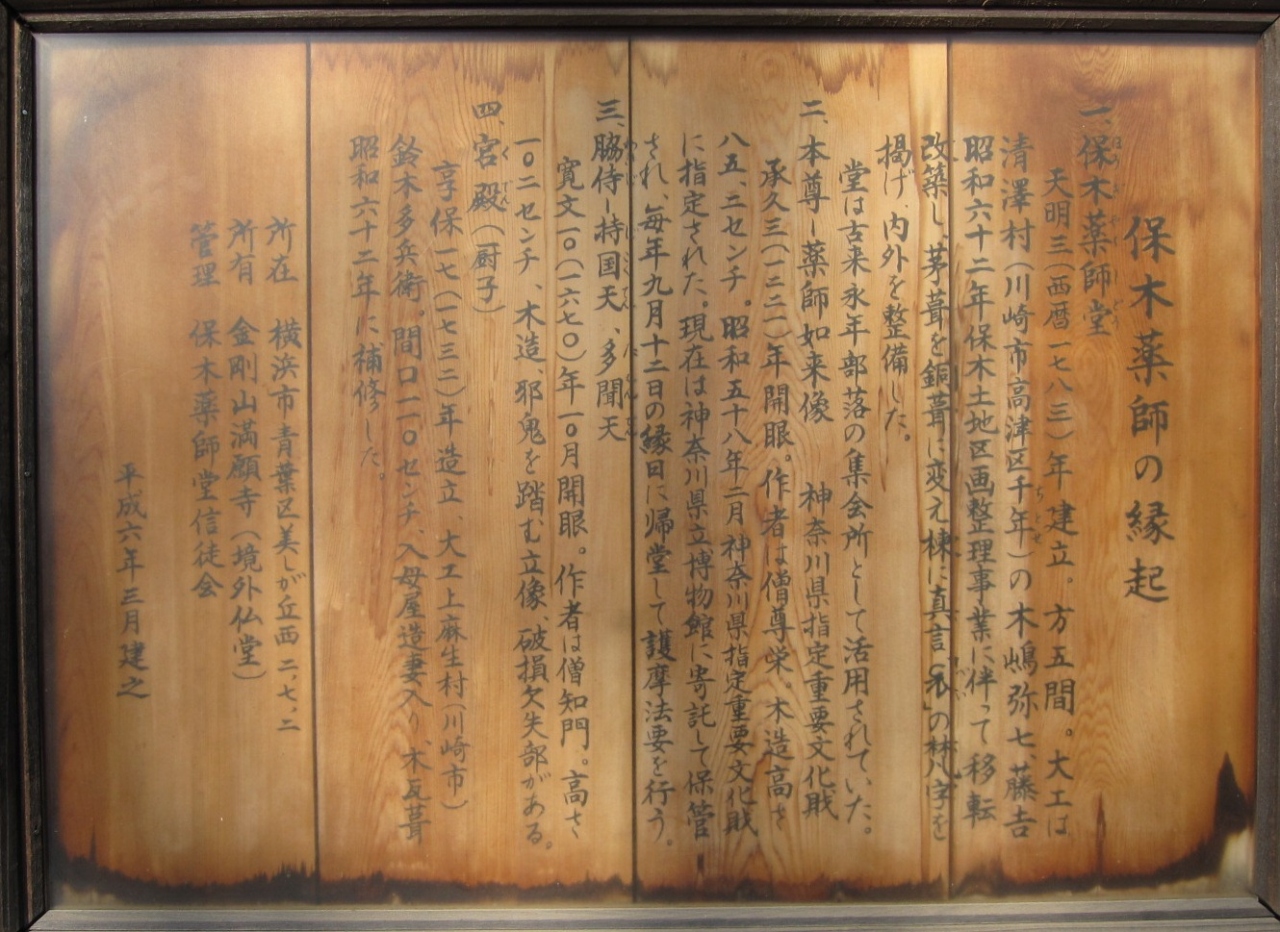 保木薬師の縁起
一、保木薬師堂
天明三(西暦一七八三)年建立。方五間。大工は
清澤村(川崎市高津区千年)の木嶋弥七、藤吉
昭和六十二年保木土地区画整理事業に伴って移転
改築し、茅葺を銅葺に変え棟に真言「」の梵字を
掲げ、内外を整備した。
堂は古来永年部落の集会所として活用されていた。
二、本尊ー薬師如来像 神奈川県指定重要文化財
承久三(一二二一)年開眼。作者は僧尊栄 木造高さ
八五、三センチ。昭和五十八年二月神奈川県指定重要文化財
に指定された。現在は神奈川県立博物館に寄託して保管
され、毎年九月十二日の縁日に帰堂して護摩法要を行う。
三、脇侍ー持国天、多聞天
寛文一〇(一六七〇)年一〇月開眼。作者は僧知門。高さ
一〇二センチ、木造、邪鬼を踏む立像、破損欠失部がある。
四、宮殿(厨子)
享保一七(一七三二)年造立、大工上麻生村(川崎市)
鈴木多兵衛。間口一一〇センチ、入母屋造妻入り、木瓦葺
昭和六十二年に補修した。
所在 横浜市青葉区美しが丘西二、七、二
所有 金剛山満願寺(境外仏堂)
管理 保木薬師堂信徒会
平成六年三月建之